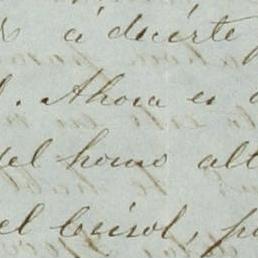 á decirte
. Ahora es
el horno alt
el Crisol, p